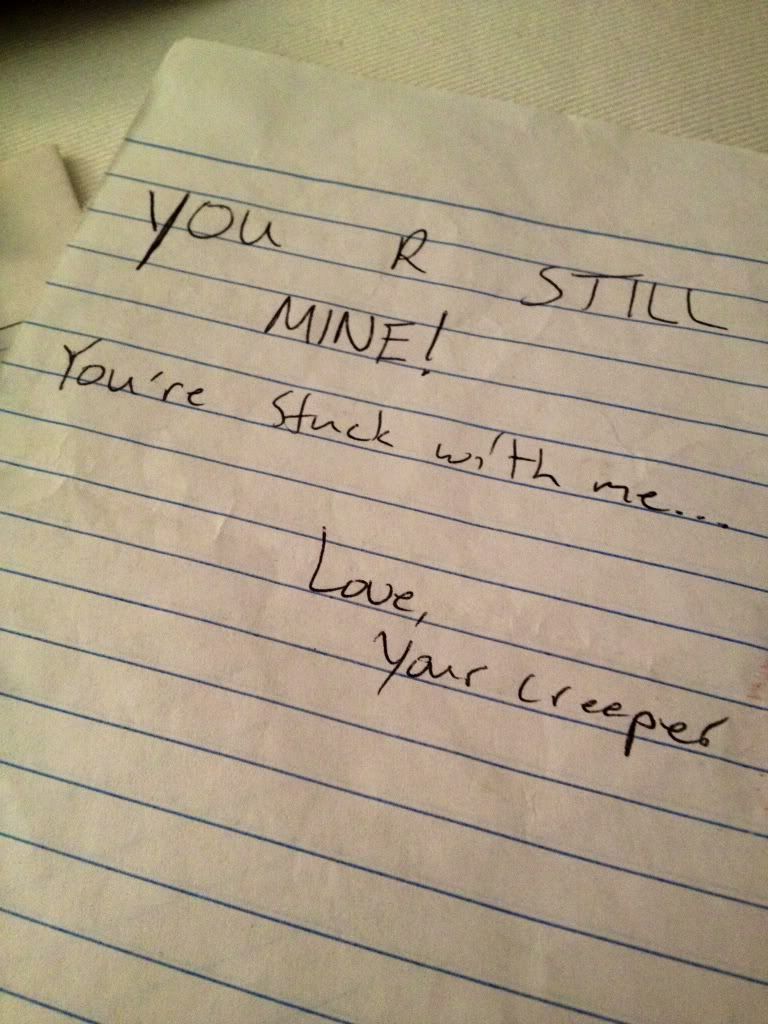 YOU R STILL
MINE!
You're stuck with me...
Love,
your creeper